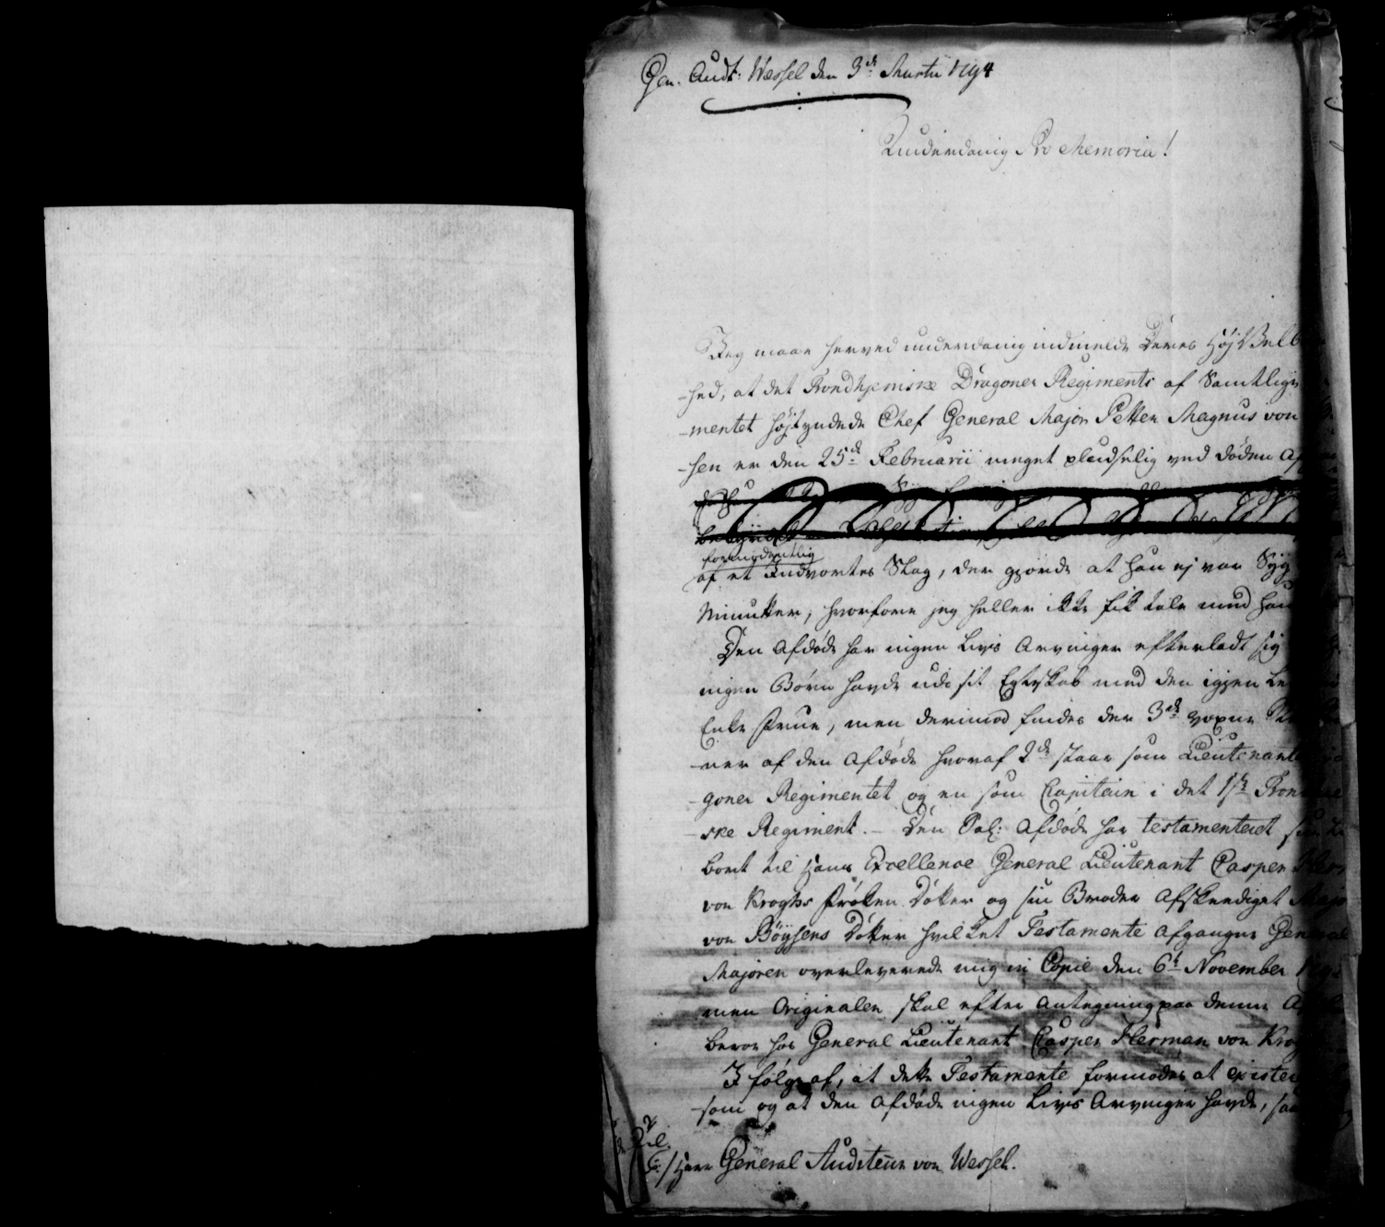 Gen. Audt: Wessel den 3de Martii 1794
Underdanig Pro Memoria!
Jeg maae herved underdanig indmelde Deres HøjVelb
-hed, at det Trondhjemske Dragoner Regiments af Samtlige
-mentet højtyndede Chef General Major Petter Magnus von
-sen er den 25de Februarii meget pludselig ved Døden
formodentlig
af et Indvortes Slag, der gjorde at han ej var Syg
Minutter, hvorfore jeg heller ikke fik tale med ham
Den Afdøde har ingen Livs Arvinger efterladt sig
ingen Børn havde udi sit Egteskab med den igjen
Enke Frue, men derimod findes der 3de voxne
-ner af den Afdøde hvoraf 2de staar som Lieutenant
-goner Regimentet og en som Capitain i det 1ste
-ske Regiment. - Den Sal: Afdøde har testamenteret
bort til Hans Excellence General Lieutenant Casper
von Kroghs Frøken Døtter og sin Broder Afskeediget Majo
von Böysens Døtter hvilket Testamente Afgangne General
Majoren overleverede mig in Copie den 6te November
men Originalen skal efter Antegning paa denne
beroe hos General Lieutenant Casper Herman von Krog
I følge af, at dette Testamente formodes at existe
-som og at den Afdøde ingen Livs Arvinger havde,
Til
Hr: Herr General Auditeur von Wessel.